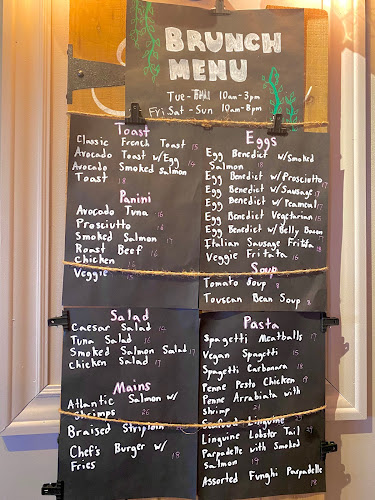 BRUNCH
MENU
Tue - Thu 10am-3pm
Fri. Sat - Sun 10am-8pm
Toast
Classic French Toast 15
Avocado Toast w/Egg 14
Avocado Smoked Salmon
Toast 18
Panini
Avocado Tuna 16
Prosciutto
Smoked Salmon 17
Roast Beef
Chicken
Veggie
Eggs
Egg Benedict w/Smoked
Salmon 18
Egg Benedict w/Prosciutto 17
Egg Benedict w/Sausage 17
Egg Benedict w/Peameal 17
Egg Benedict Vegetarian 15
Egg Benedict w/Belly Bacon
Italian Sausage Fritta
Veggie Fritata 16
Soup
Tomato Soup 8
Touscan Bean Soup 8
Salad
Caesar Salad 14
Tuna Salad 16
Smoked Salmon Salad 17
Chicken Salad 17
Mains
Atlantic Salmon w/
shrimps 26
Braised Striploin
Chef's Burger w/
Fries 18
Pasta
Spagetti Meatballs 17
Vegan Spagetti 15
Spagetti Carbonara 18
Penne Pesto Chicken 19
Penne Arrabiata with
Shrimp 21
Seafood Linguine
Linguine Lobster Tail
Parpadelle with Smoked
Salmon 19
Assorted Funghi Parpadelle
18